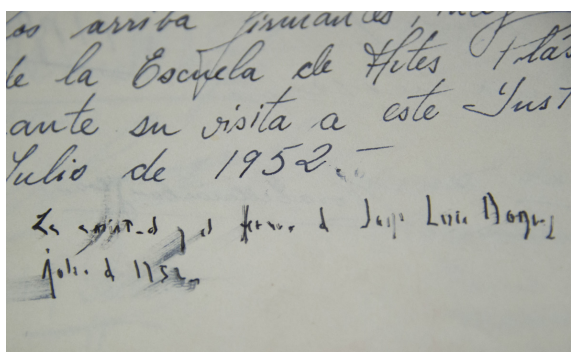 los arriba firmantes,
de la Escuela de Artes Plás
ante su visita a este Inst
Julio de 1952.-
La amistad y el fervor de Jorge Luis Borges
julio de 1952.